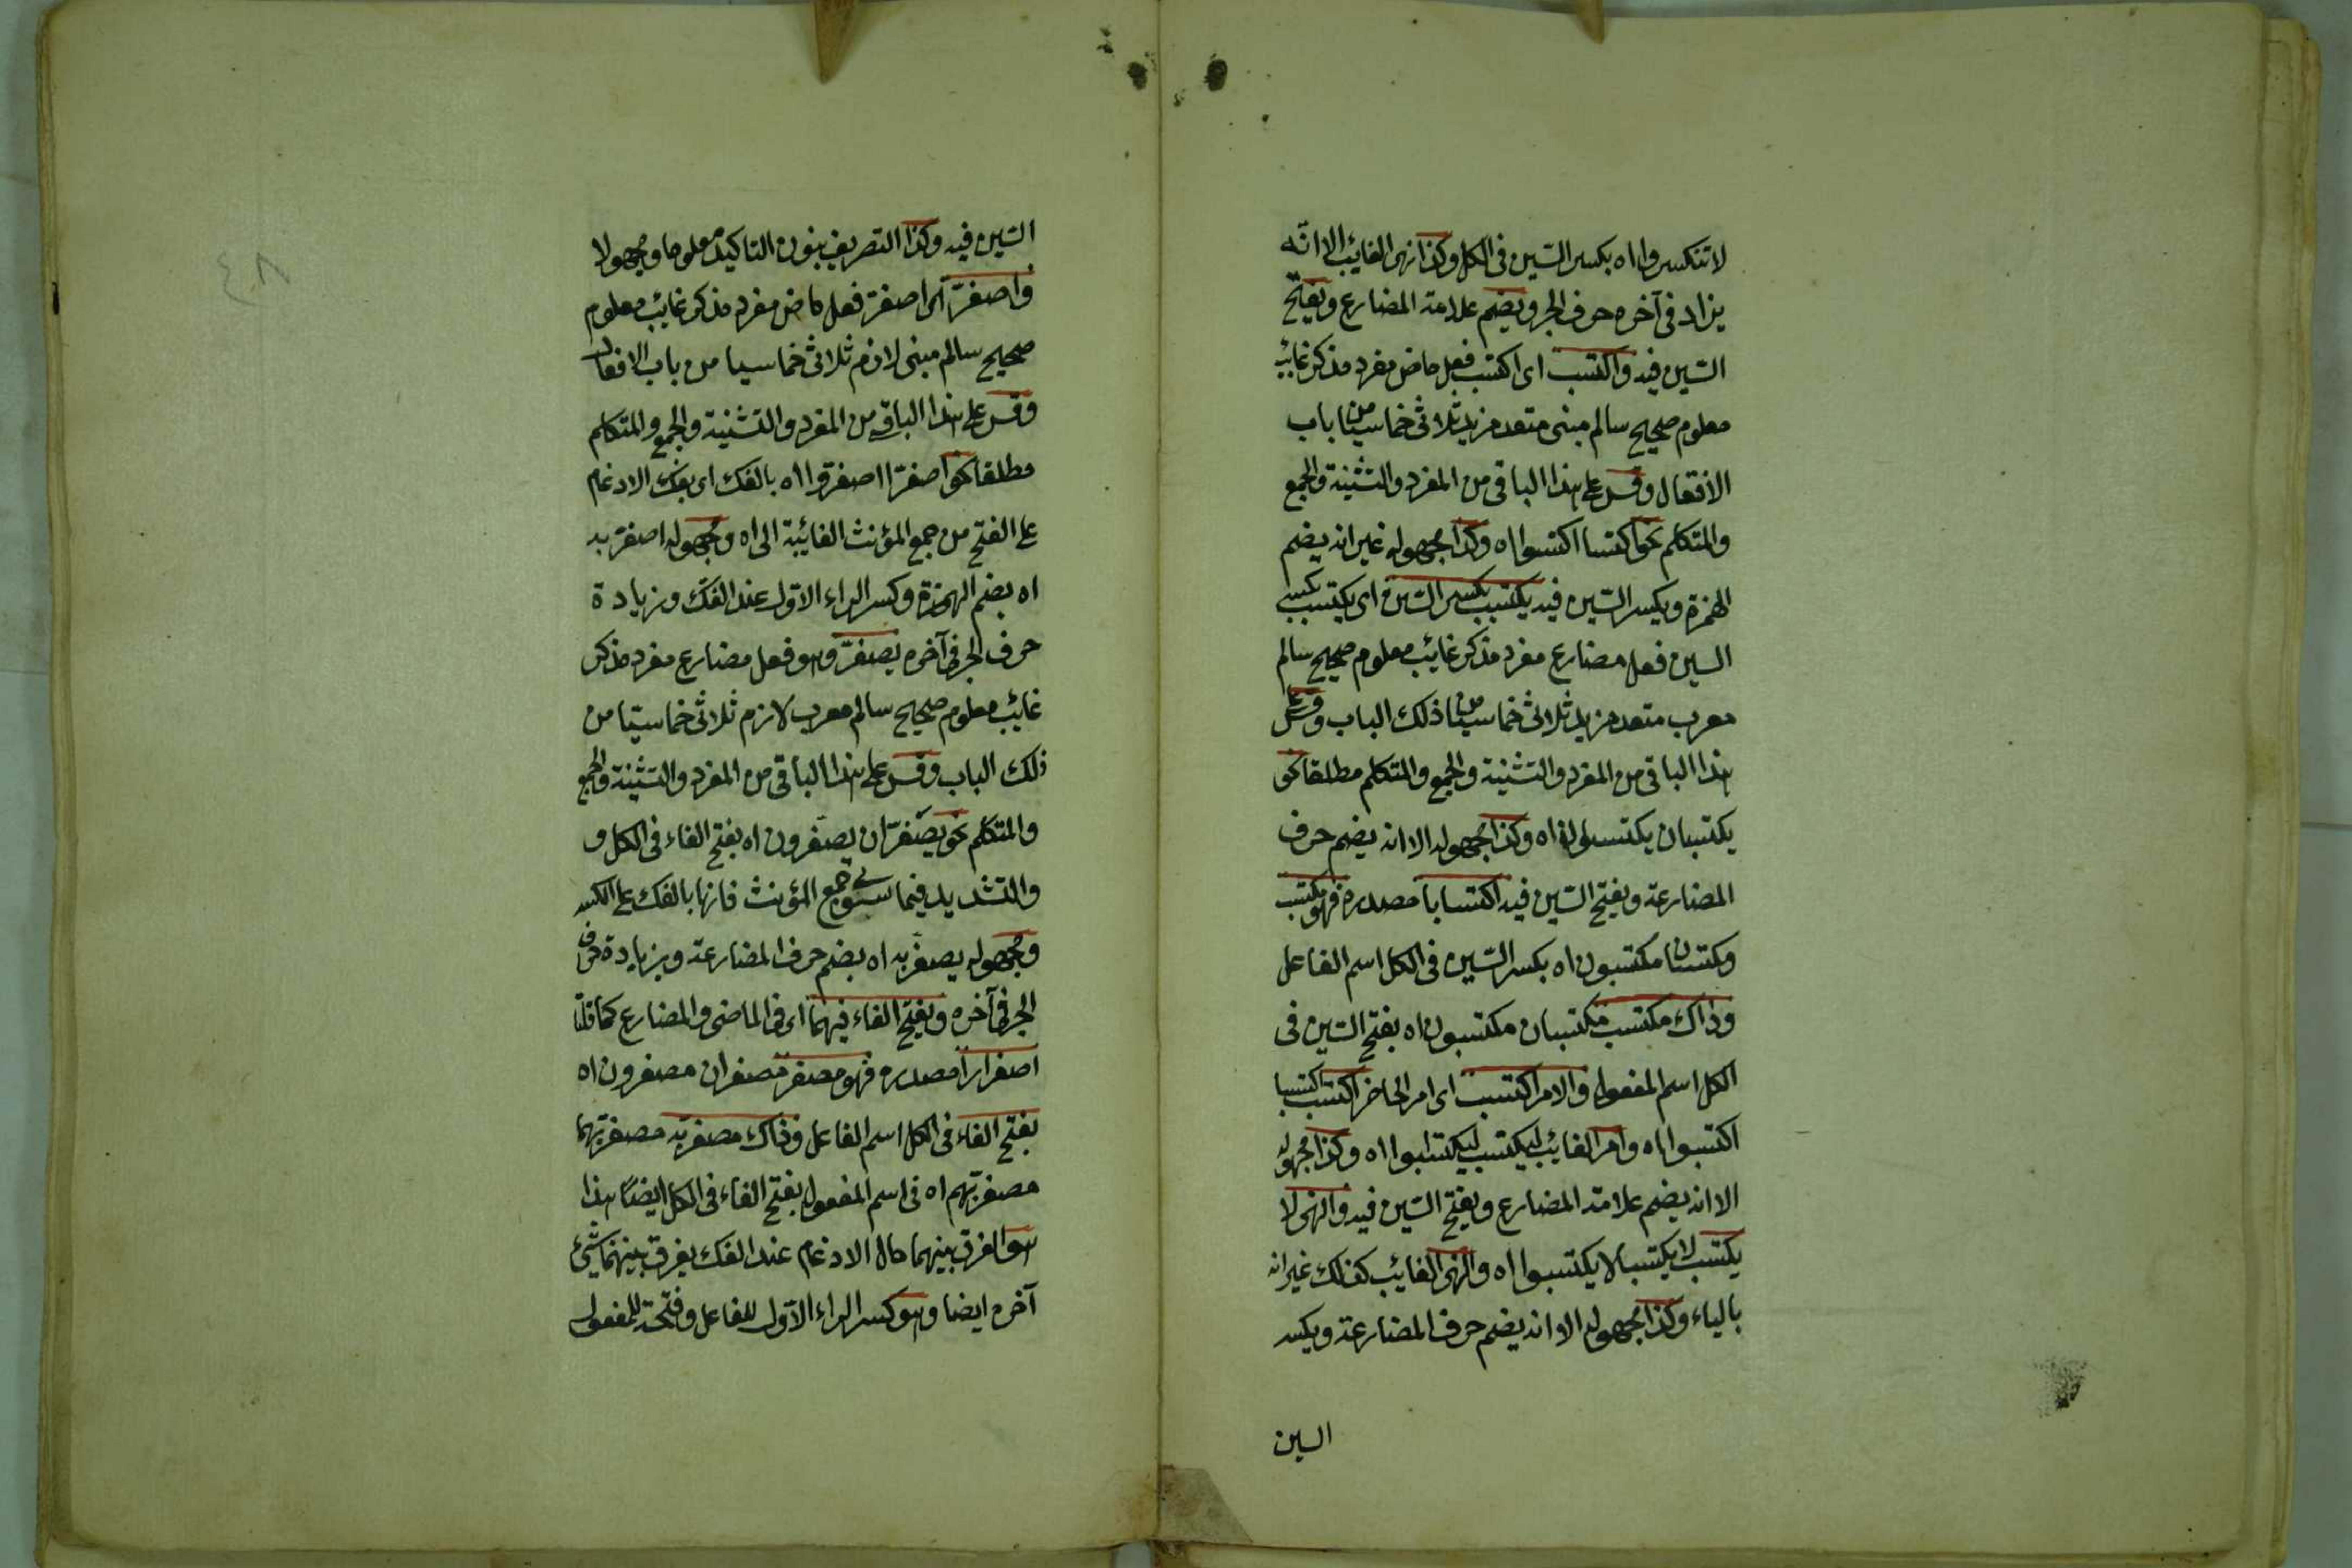 لا تنكسروا اه بكسر السّين فى الكل وكذا نهى الغائب الا انّه
يزاد فى آخره حرف الجر ويضم علامة المضارع ويفتح
السّين فيه واكتسب اى اكتسب فعل ماض مفرد مذكر غائب
معلوم صحيح سالم مبنى متعد مزيد ثلاثى خماسيا من باب
الافتعال وقس على هذا الباقى من المفرد والتثنية والجمع
والمتكلم نحو اكتسبا اكتسبوا اه وكذا مجهوله غير انه يضم
الهمزة ويكسر السّين فيه يكتسب بكسر السّين اى يكتسب بكسر
السين فعل مضارع مفرد مذكر غائب معلوم صحيح سالم
معرب متعد مزيد ثلاثى خماسيا من ذلك الباب وقس على
هذا الباقى من المفرد والتثنية والجمع والمتكلم مطلقا نحو
يكتسبان يكتسبون اه وكذا مجهوله الا انه يضم حرف
المضارعة ويفتح السّين فيه اكتسابا مصدره فهو مكتسب
ومكتسبان مكتسبون اه بكسر السّين فى الكل اسم الفاعل
وذاك مكتسب مكتسبان مكتسبون اه بفتح السّين فى
الكل اسم المفعول والامر اكتسب اى امر الحاضر اكتسب اكتسبا
اكتسبوا اه وامر الغائب ليكتسب ليكتسبوا اه وكذا مجهوله
الا انه يضم علامة المضارع ويفتح السّين فيه والنهى لا
يكتسب لا يكتسبا لا يكتسبوا اه والنهى الغائب كذلك غير انه
بالياء وكذا مجهوله الا انه يضم حرف المضارعة ويكسر
السين
السّين فيه وكذا التصريف بنون التاكيد معلوما ومجهولا
واصفرّ اى اصفرّ فعل ماض مفرد مذكر غائب معلوم
صحيح سالم مبنى لازم ثلاثى خماسيا من باب الافعلال
وقس على هذا الباقى من المفرد والتثنية والجمع والمتكلم
مطلقا نحو اصفرّا اصفرّوا اه بالفك اى بفك الادغام
على الفتح من جمع المؤنث الغائبة الى اه ومجهوله اصفرّ به
اه بضم الهمزة وكسر الراء الاوّل عند الفكّ وزيادة
حرف الجر فى آخره يصفرّ وهو فعل مضارع مفرد مذكر
غائب معلوم صحيح سالم معرب لازم ثلاثى خماسيّا من
ذلك الباب وقس على هذا الباقى من المفرد والتثنية والجمع
والمتكلم نحو يصفرّان يصفرون اه بفتح الفاء فى الكل و
والتشديد فيما سوى جمع المؤنث فانها بالفك على الكسر
ومجهوله يصفرّ به اه بضم حرف المضارعة وبزيادة حرف
الجر فى آخره ويفتح الفاء فيهما اى فى الماضى والمضارع كما قلنا
اصفرارا مصدره فهو مصفر مصفران مصفرون اه
بفتح الفاء فى الكل اسم الفاعل وذاك مصفرّ به مصفرّ بهما
مصفرّ بهم اه فى اسم المفعول بفتح الفاء فى الكل ايضًا هذا
هو الفرق بينهما حال الادغام عند الفك يفرق بينهما بشئ
آخره ايضا وهو كسر الراء الاوّل للفاعل وفتحة للمفعول